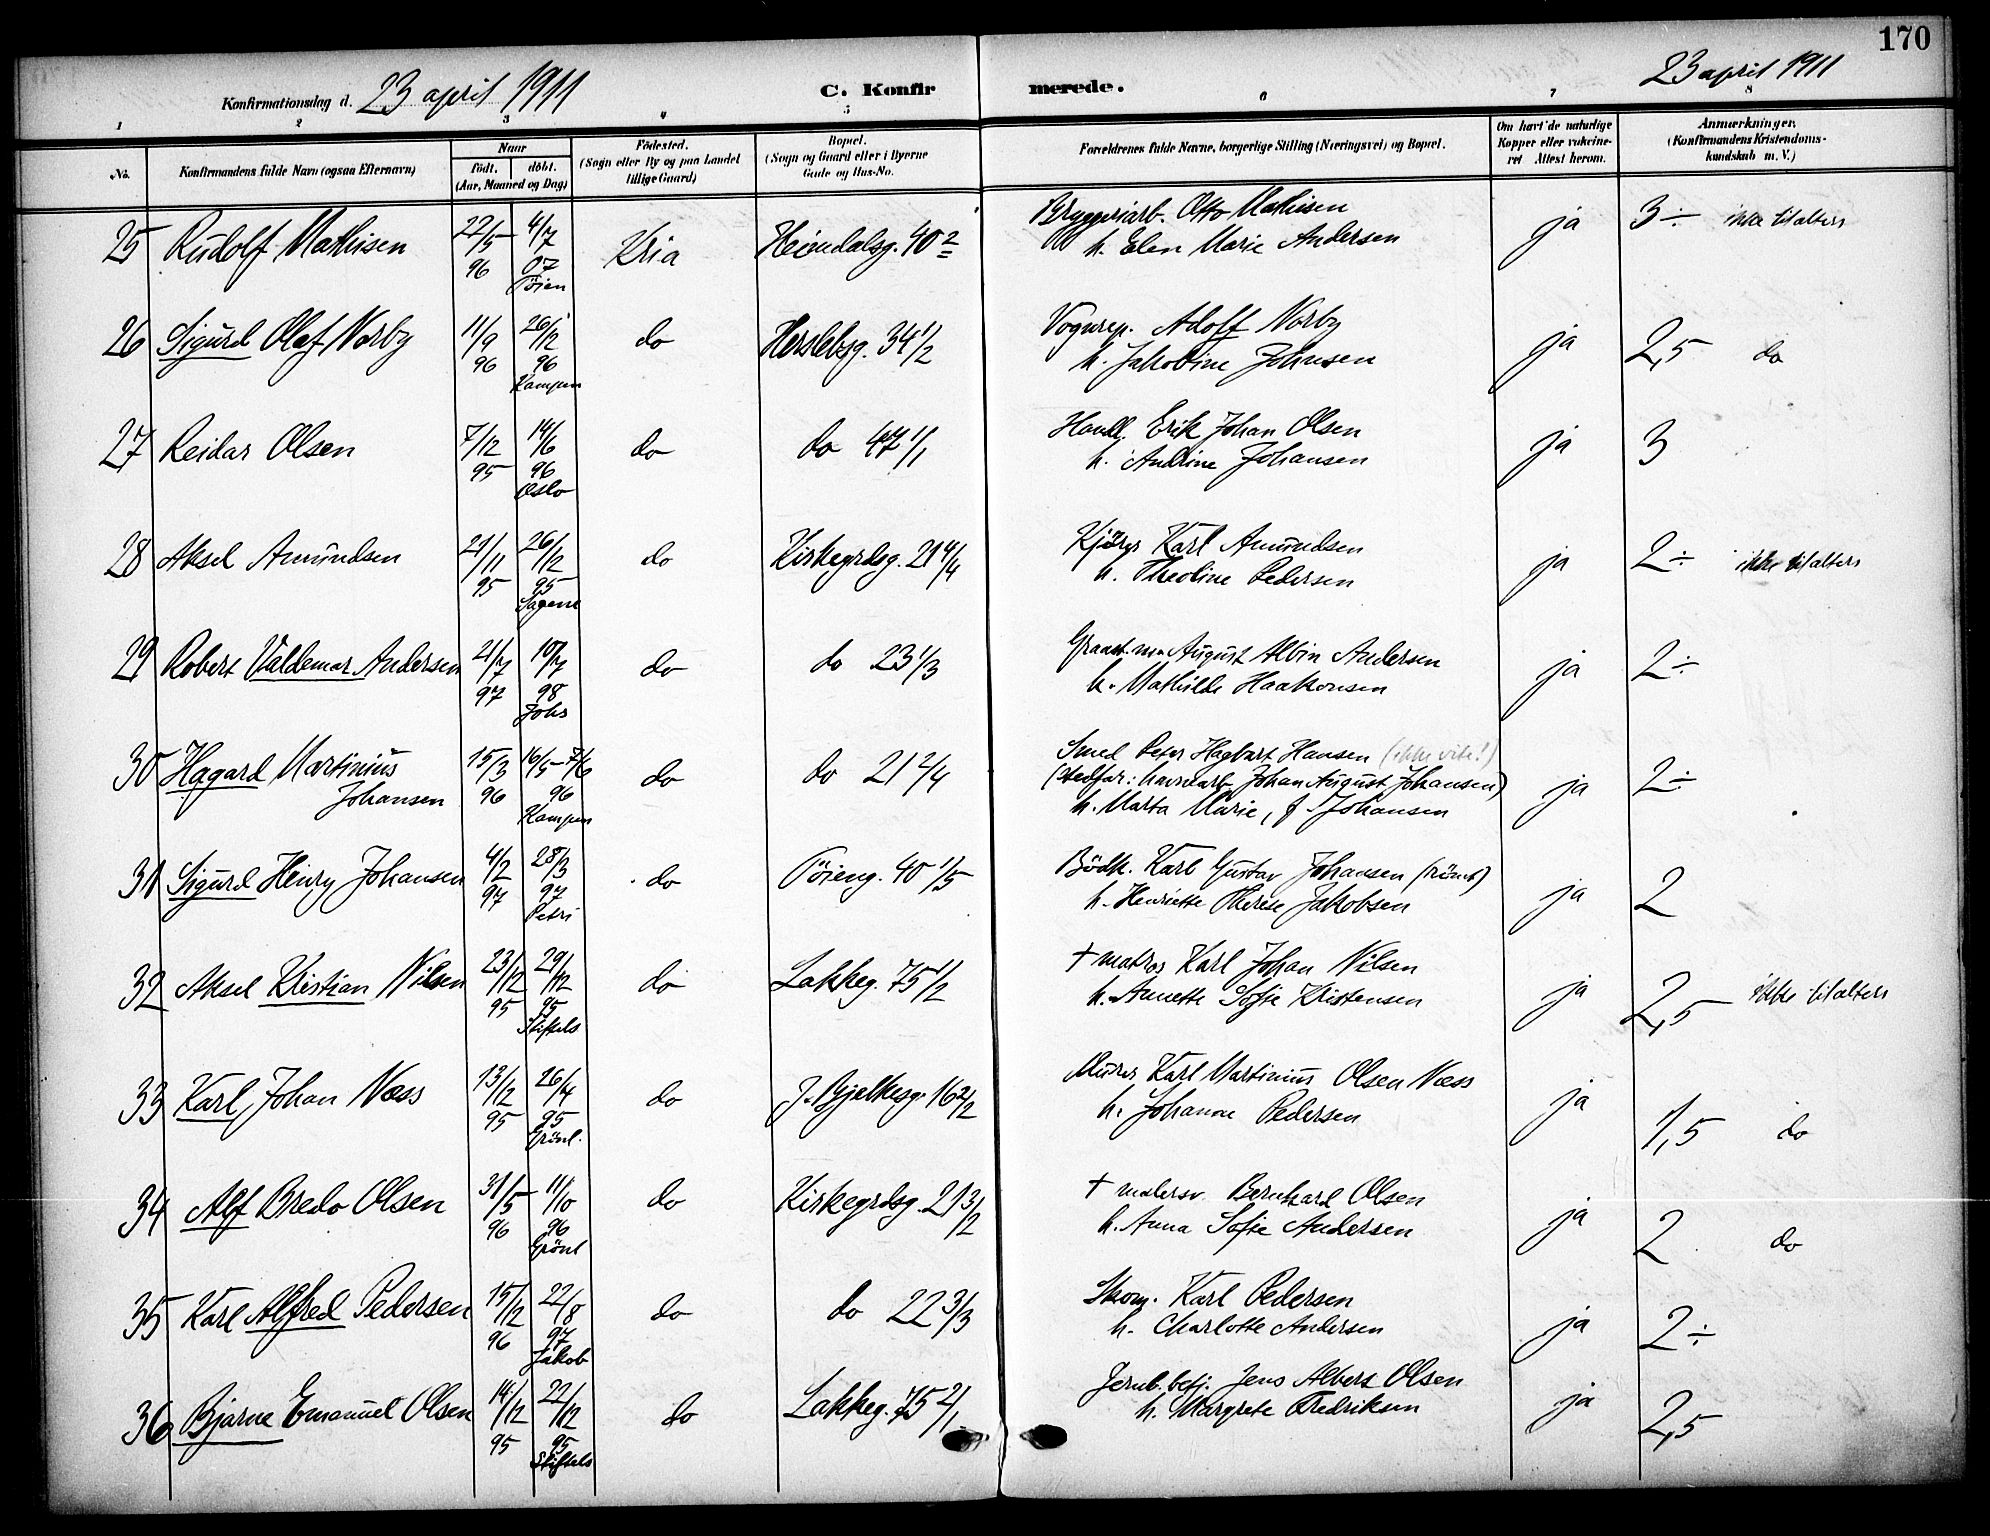 170
Konfirmationsdag d. 23 april 1911
C. Konfirmerede.
23 april 1911
1 2 3 4 5 6 7 8
No.
Konfirmandens fulde Navn (ogsaa Efternavn)
Naar
födt. döbt.
(Aar, Maaned og Dag)
Födested.
(Sogn eller By og paa Landet
tillige Gaard)
Bopæl.
(Sogn og Gaard eller i Byerne
Gade og Hus-No.
Forældrenes fulde Navne, borgerlige Stilling (Næringsvei) og Bopæl.
Om havt de naturlige
Kopper eller vakcine-
ret Attest herom.
Anmærkninger.
(Konfirmandens Kristendoms-
kundskab m. V.)
25 Rudolf Mathisen 22/5 96 4/7 07 Töien Kria Heimdalsg. 40 2
Bryggeriarb. Otto Mathisen
h. Elen Marie Andersen
ja 3÷ ikke til alters
26 Sigurd Olaf Norby 11/9 96 26/12 96 Kampen do Herslebsg. 34 1/2
Vognrep. Adolf Norby
h. Jakobine Johnsen
ja 2,5 do
27 Reidar Olsen 7/12 95 14/6 96 Oslo do do 47 1/1
Handl. Erik Johan Olsen
h. Andrine Johansen
ja 3
28 Aksel Amundsen 21/11 95 26/12 95 Sagene do Kirkegrdsg. 21 4/4
Kjörer Karl Amundsen
h. Theoline Pedersen
ja 2÷ ikke til alters
29 Robert Valdemar Andersen 21/7 97 10/7 98 Johs do do 23 1/3
August Albin Andersen
h. Mathilde Haakonsen
ja 2÷
30 Hagard Martinius
Johansen 15/3 96 16/5-7/6 96 Kampen do do 21 2/4
Smed Peter Hagbart Hansen (ikke vite!)
(stedfar: havnearb. Johan August Johansen)
h. Marta Marie, f. Johansen
ja 2÷
31 Sigurd Henry Johansen 4/2 97 28/3 97 Petri do Töieng. 40 1/5
Bödk. Karl Gustav Johansen
h. Henriette Therese Jakobsen
ja 2
32 Aksel Kristian Nilsen 23/12 95 29/12 95 Stiftels do Lakkeg. 75 1/2
† matros Karl Johan Nilsen
h. Annette Sofie Kristensen
ja 2,5 ikke til alters
33 Karl Johan Næss 13/12 95 26/4 95 Grönl. do J. Bjelkesg. 16 2/2
Murer Karl Martinius Olsen Næss
h. Johanne Pedersen
ja 1,5 do
34 Alf Bredo Olsen 31/5 96 11/10 96 Grönl do Kirkegrdsg. 21 3/2
† malersv. Bernhard Olsen
h. Anna Sofie Andersen
ja 2 do
35 Karl Alfred Pedersen 15/12 96 22/8 97 Jakob do do 22 3/3
Skom. Karl Pedersen
h. Charlotte Andersen
ja 2÷
36 Bjarne Emanuel Olsen 14/12 95 22/12 95 Stiftels do Lakkeg. 75 2/1
Jernb. betj. Jens Albert Olsen
h. Margrete Fredriksen
ja 2,5